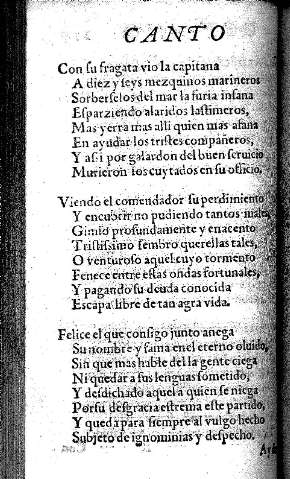 CANTO
Con su fragata vio la capitana
A diez y seys mezquinos marineros
Sorberselos del mar la furia insana
Esparziendo alaridos lastimeros,
Mas yerra mas alli quien mas afana
En ayudar los tristes compañeros,
Y assi por galardon del buen seruicio
Murieron los cuytados en su oficio.
Viendo el comendador su perdimiento
Y encubrir no pudiendo tantos males,
Gimio profundamente y en acento
Tristissimo sembro querellas tales,
O venturoso aquel cuyo tormento
Fenece entre estas ondas fortunales,
Y pagando su deuda conocida
Escapa libre de tan agra vida.
Felice el que consigo junto anega
Su nombre y fama en el eterno oluido,
Sin que mas hable del la gente ciega
Ni quedar a sus lenguas sometido,
Y desdichado aquel a quien se niega
Por su desgracia estrema este partido,
Y queda para siempre al vulgo hecho
Subjeto de ignominias y despecho.